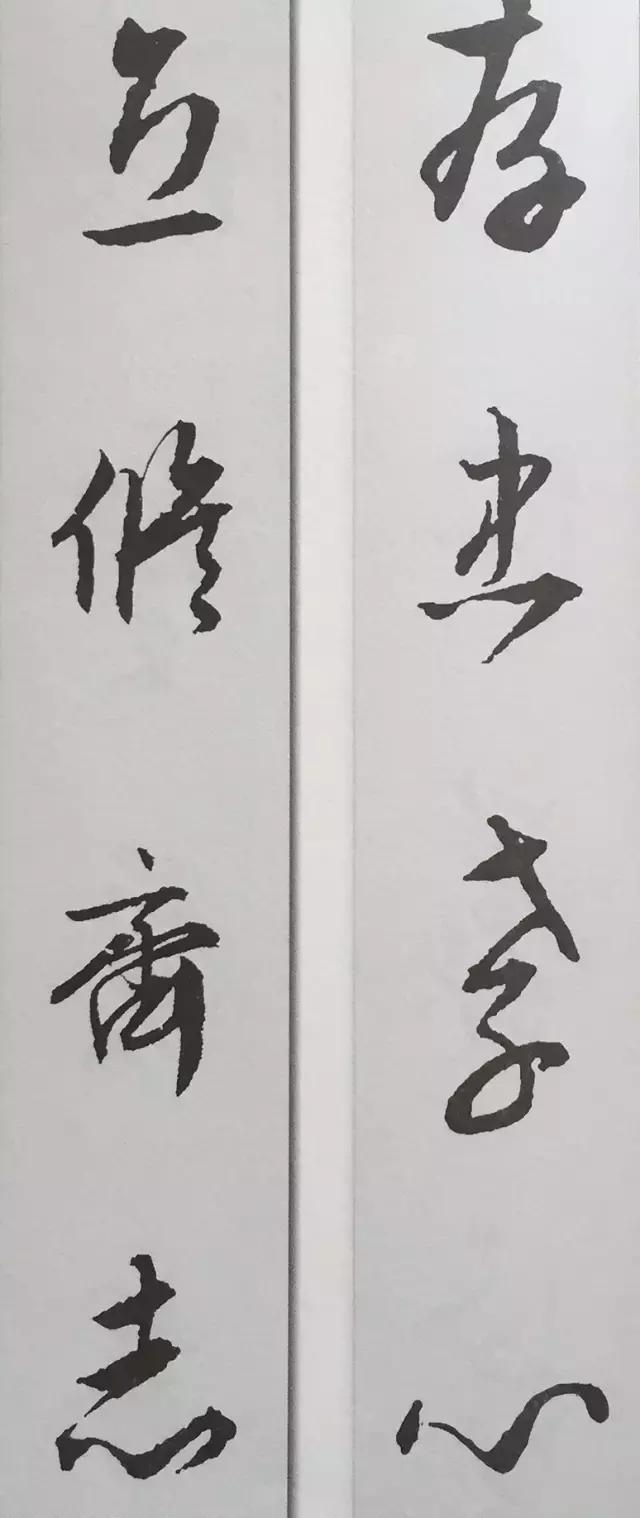 存忠孝心
立修齊志